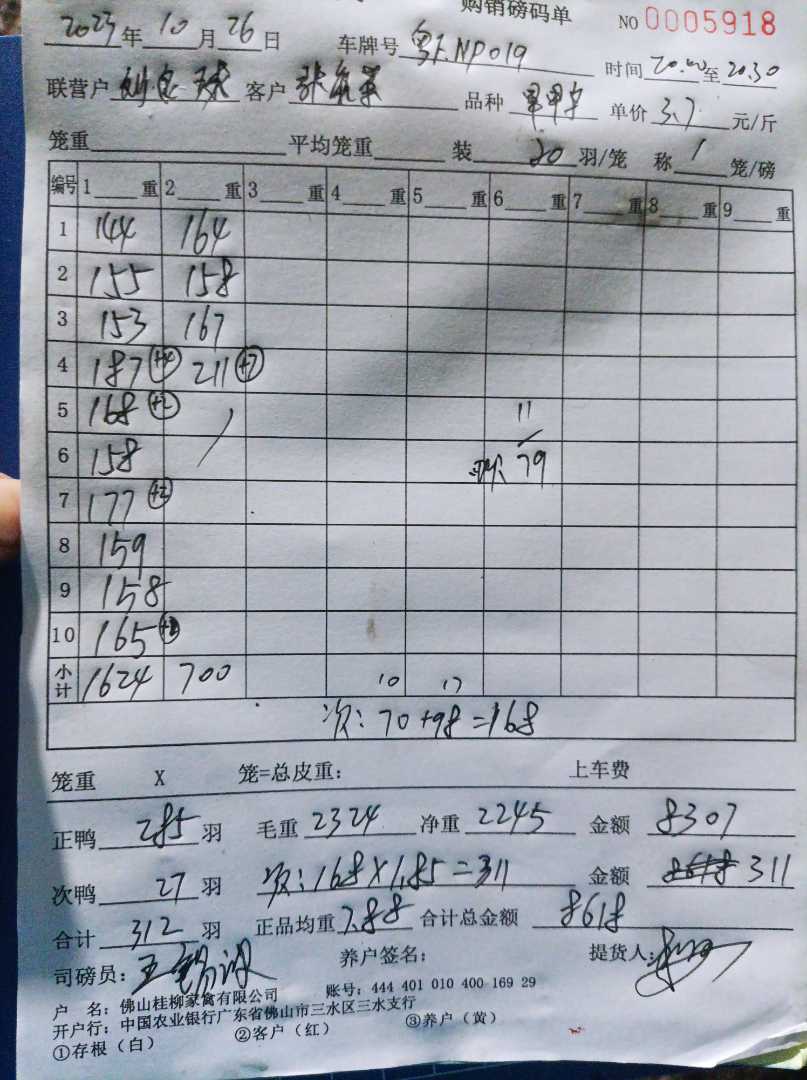 购销磅码单 NO 0005918
2023年10月26日 车牌号 NP019 时间20.00至20.30
联营户 客户 品种 单价3.7元/斤
笼重 平均笼重 装20羽/笼 称1笼/磅
编号 1 重 2 重 3 重 4 重 5 重 6 重 7 重 8 重 9 重
1 144 164
2 155 158
3 153 167
4 187 +4 211 +7
5 168 +2 11
6 158 79
7 177 +2
8 159
9 158
10 165
小计 1624 700 10 17
次: 70+98=168
笼重 X 笼=总皮重: 上车费
正鸭285羽 毛重2324 净重2245 金额8307
次鸭27羽 次:168X1.85=311 金额 8618 311
合计312羽 正品均重7.88 合计总金额8618
司磅员: 养户签名: 提货人:
户 名:佛山桂柳家禽有限公司 账号:444 401 010 400 169 29
开户行:中国农业银行广东省佛山市三水区三水支行
①存根(白) ②客户(红) ③养户(黄)